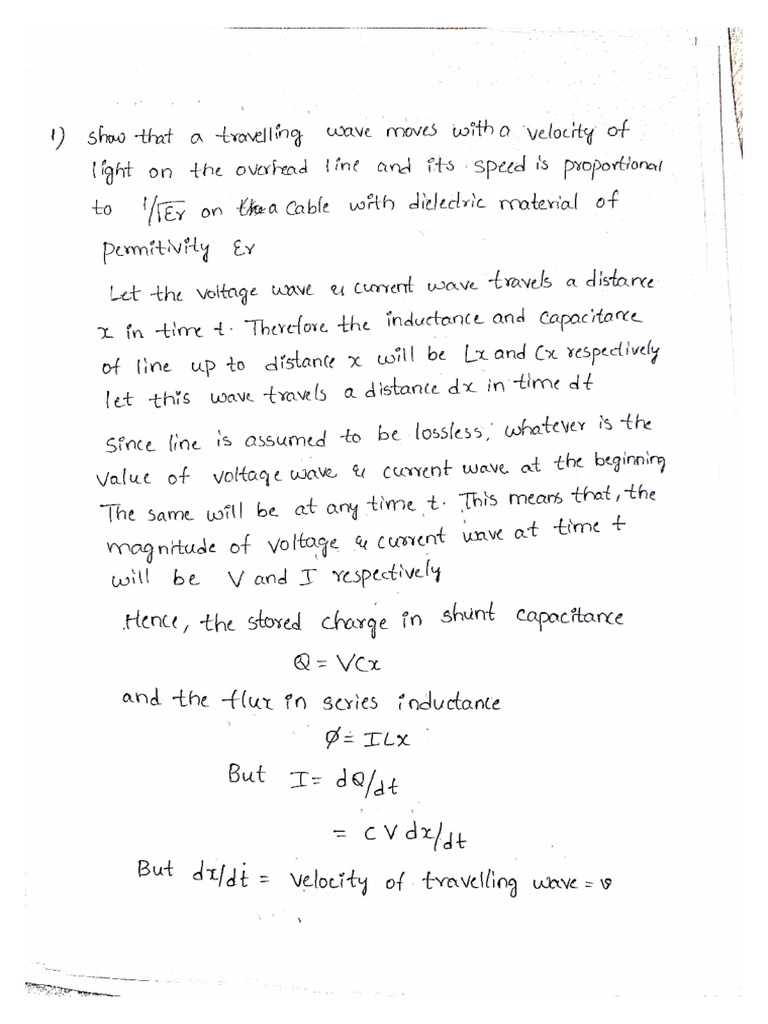 1) show that a travelling wave moves with a velocity of
light on the overhead line and its speed is proportional
to 1/√εr on the a cable with dielectric material of
Permitivity εr
Let the voltage wave & current wave travels a distance
x in time t. Therefore the inductance and capacitance
of line up to distance x will be Lx and Cx respectively
let this wave travels a distance dx in time dt
Since line is assumed to be lossless, whatever is the
value of voltage wave & current wave at the beginning
The same will be at any time t. This means that, the
magnitude of voltage & current wave at time t
will be V and I respectively
Hence, the stored charge in shunt capacitance
Q = VCx
and the flux in series inductance
Ø = ILx
But I = dQ/dt
= C V dx/dt
But dx/dt = velocity of travelling wave = v